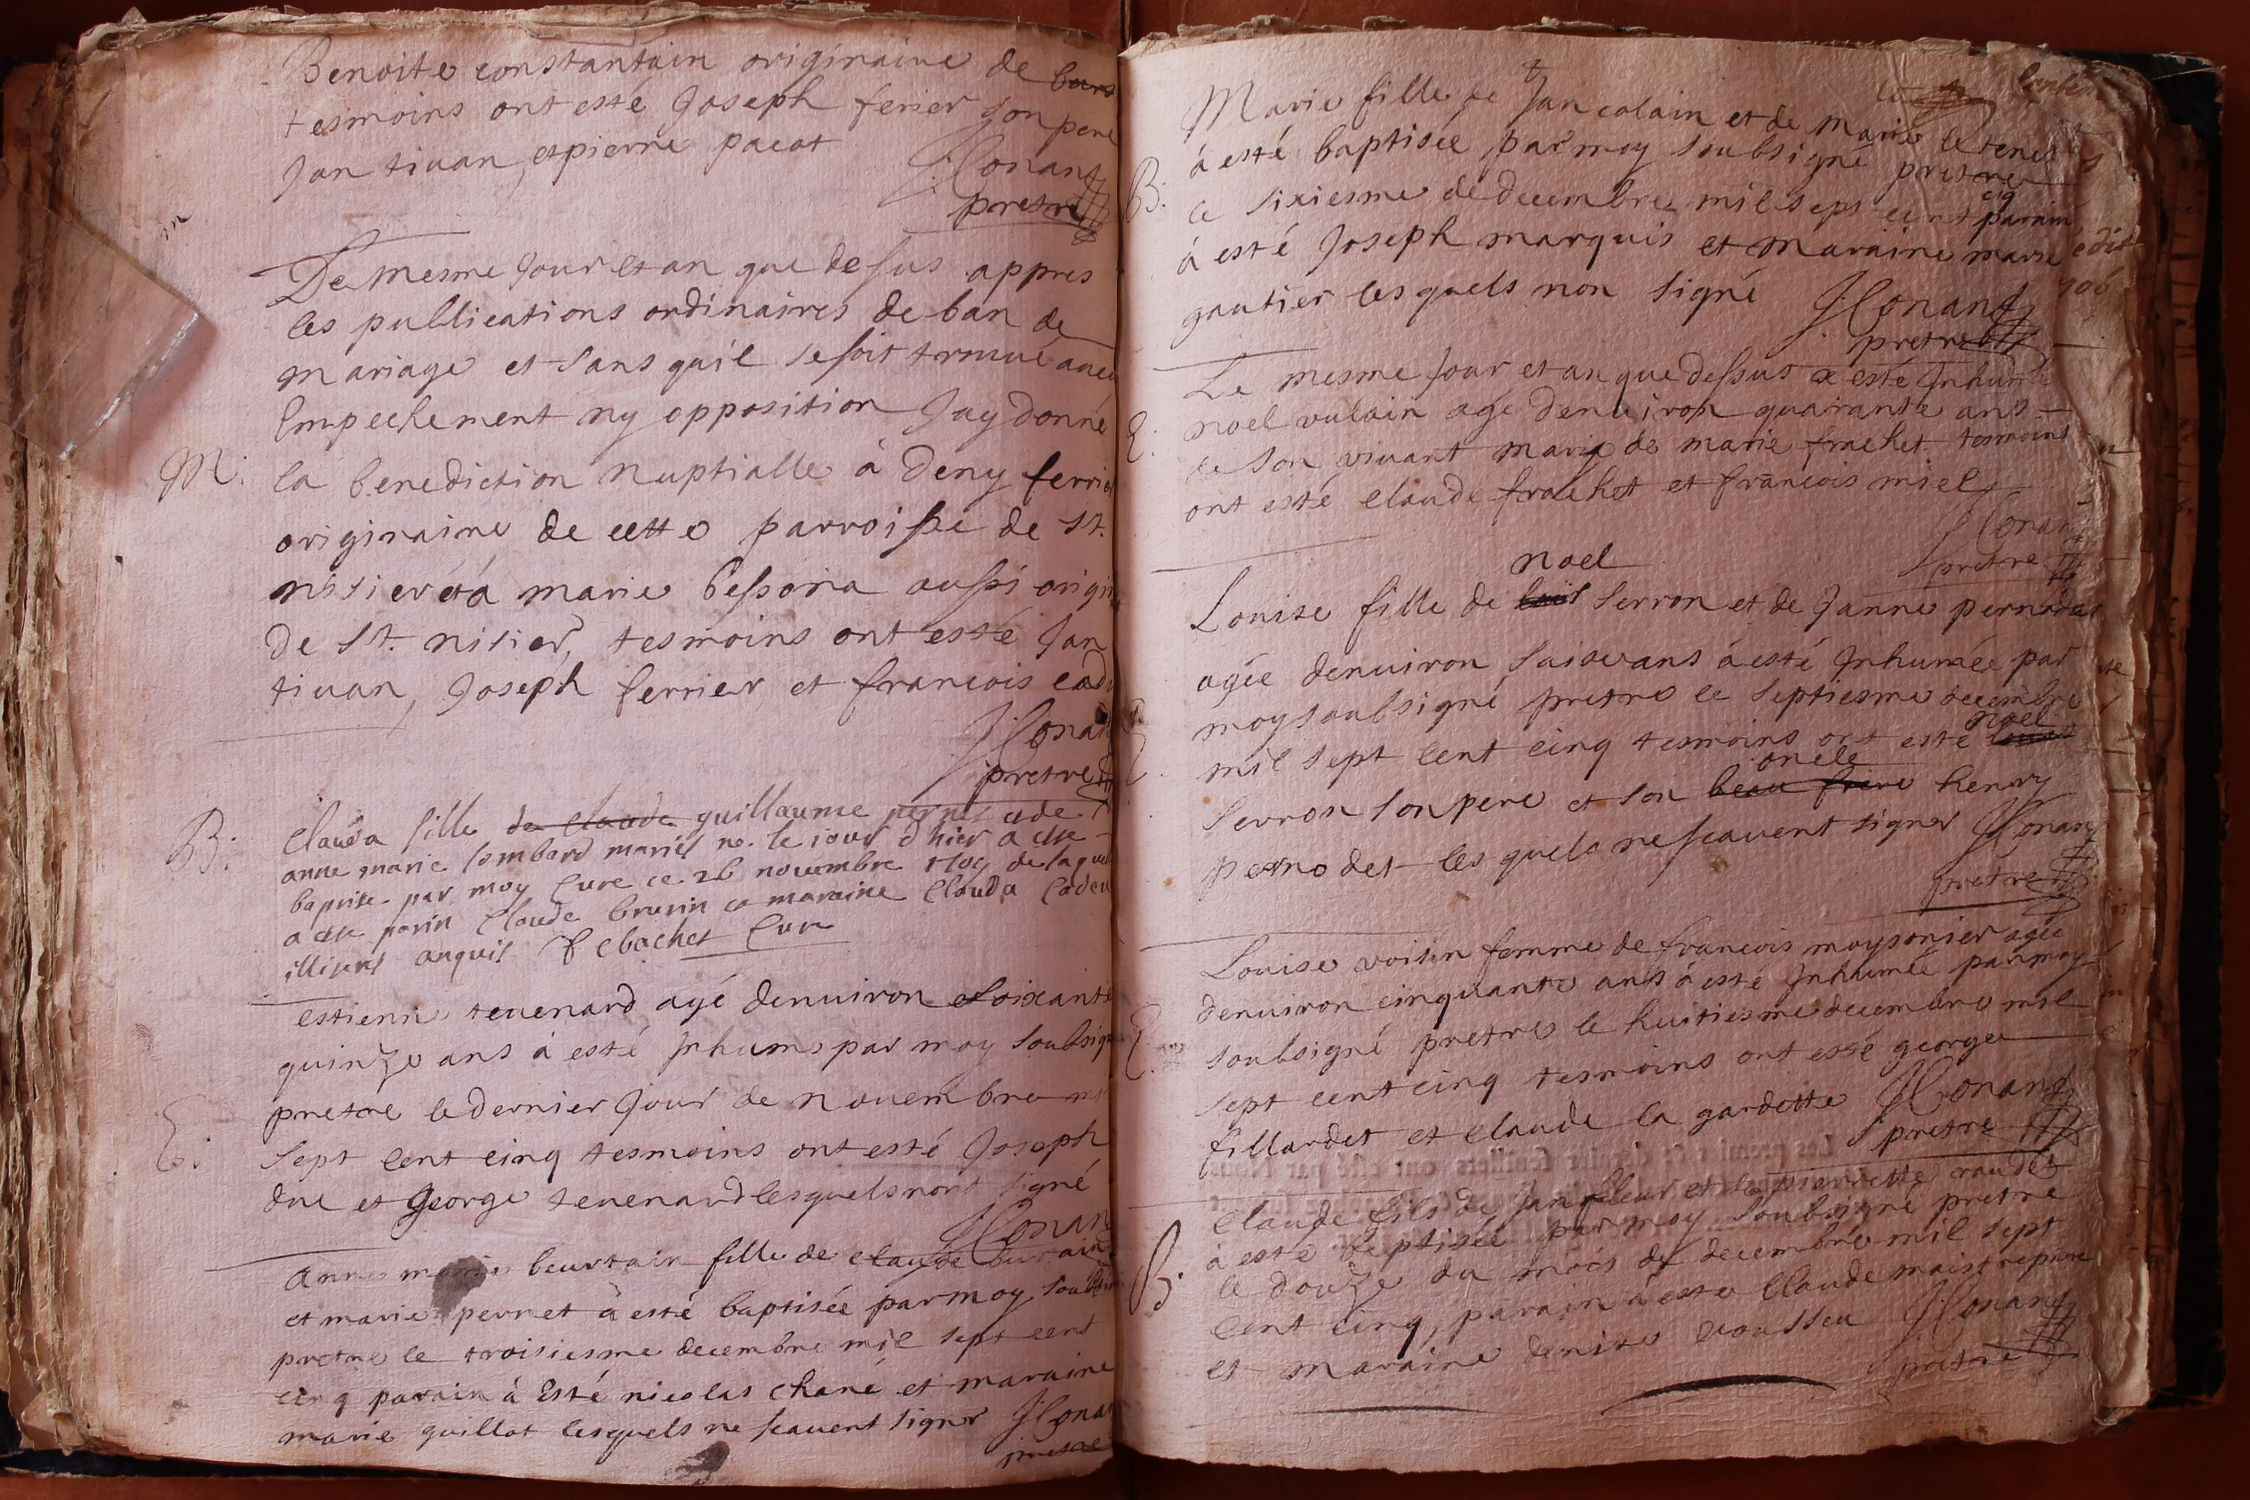 Benoite constantain originaire de
tesmoins ont esté Joseph ferier son pere
Jan tivan, et pierre pacot
JConant
pretre
Le mesme Jour et an que desus appres
les publications ordinaires de ban de
mariage et sans quil se soit trouué aucu
Empechement ny opposition Jay donné
M: la benediction nuptialle à Deny ferrie
originaire de cette parroisse de St.
nisier et à marie bessona aussi origi
De St. nisier, tesmoins ont esté Jan
tivan, Joseph ferrier et francois
JConan
pretre
B: Clauda fille de claude guillaume
anne marie lombard mariés le jour d hier a este
baptisee par moy Cure ce 26 novembre 1705 de laquel
a este parin Claude brurin et maraine Clauda
illiseres anquis Clachet Cure
estienne tevenard agé denuiron soixante
quinze ans à esté Jnhumé par moy soubsign
pretre le dernier Jour de novembre mi
E: sept cent cinq tesmoins ont esté Joseph
duc et George tevenard lesquels nont signé
JConan
Anne beurtain fille de claude
et marie pernet à esté baptisée par moy soub
pretre le troisiesme decembre mil sept cent
cinq parain à Esté nicolas chané et maraine
marie guillot lesquels ne scauent signer JCona
pretre
Marie fille de Jan colain et de Marie
B: à esté baptisée par moy soubsigné pretre
le sixiesme de decembre mil sept cent cinq parain
à esté Joseph marquis et maraine marie
gautier lesquels non signé JConant
pretre
Le mesme Jour et an que dessus a esté Jnhumé
E: noel vulain agé denuiron quarante ans
de son vivant mary de marie frachet tesmoins
ont esté claude frachet et francois miel
JConan
pretre
noel
Louise fille de louis serron et de Janne pernodet
agée denuiron saise ans à esté Jnhumée par
moy soubsigné pretre le septiesme decembre
noel
E. mil sept cent cinq tesmoins ont esté louis
oncle
serron son pere et son beau frere henry
pernodet lesquels ne scauent signer JConan
pretre
Louise voisin femme de francois moysonier agée
denuiron cinquante ans à esté Jnhumée par moy
E. soubsigné pretre le huitiesme decembre mil
sept cent cinq tesmoins ont esté george
fillardet et claude la gardette JConant
pretre
Claude fils de Jan fleur et de pierrette
à esté baptisée par moy soubsigné pretre
B. le douze du mois de decembre mil sept
cent cinq, parain à esté claude maistrepierre
et maraine denise JConant
pretre